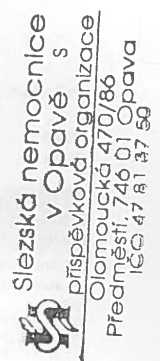 Slezská nemocnice
v Opavě s
příspěvková organizace
Olomoucká 470/86
Předměstí, 746 01 Opava
IČO 47 81 37 50